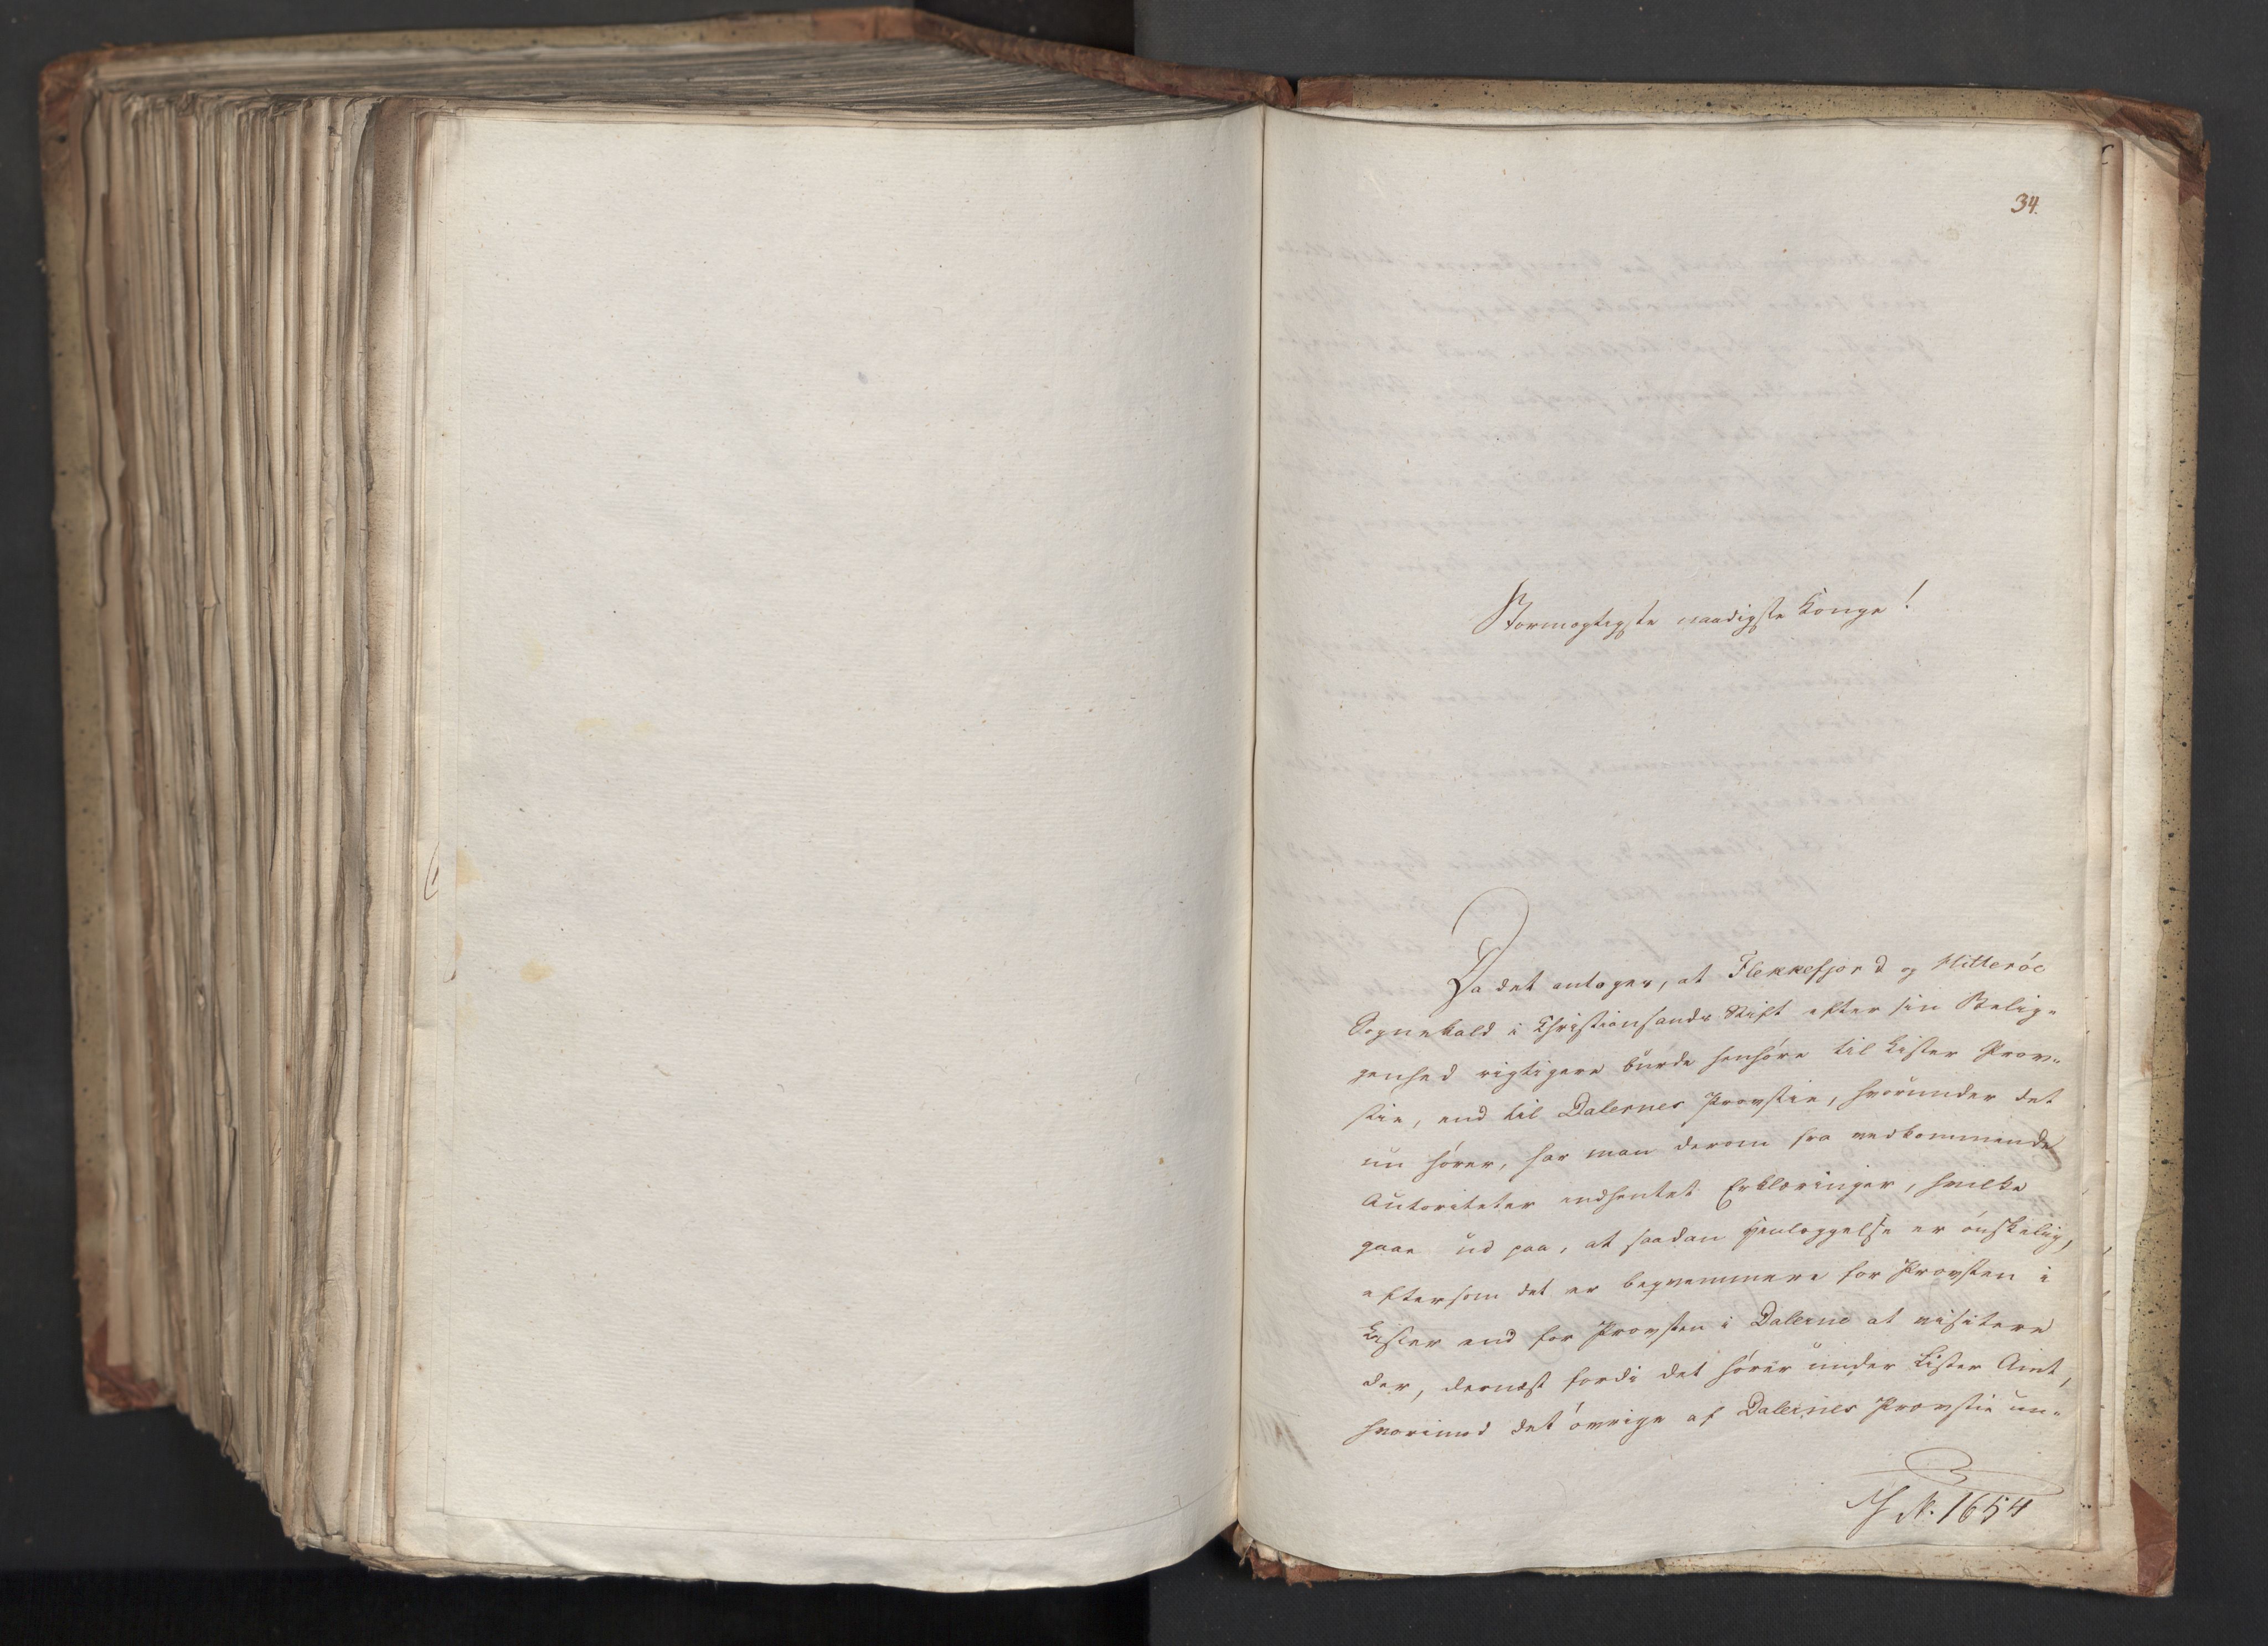 34.
Stormægtigste naadigste Konge!
Da det antages, at Flekkefjord og Hitteröe
Sognekald i Christiansands Stift efter sin Belig-
genhed rigtigere burde henhøre til Lister Prov-
stie, end til Dalernes Provstie, hvorunder det
nu hører, har man derom fra vedkommende
Autoriteter indhentet Erklæringer, hvilke
gaae ud paa, at saadan Henlæggelse er ønskelig,
eftersom det er beqvemmere for Provsten i
Lister end for Provsten i Dalerne at visitere
der, dernæst fordi det hører under Lister Amt,
hvorimod det øvrige af Dalernes Provstie un-
J. N. 1654